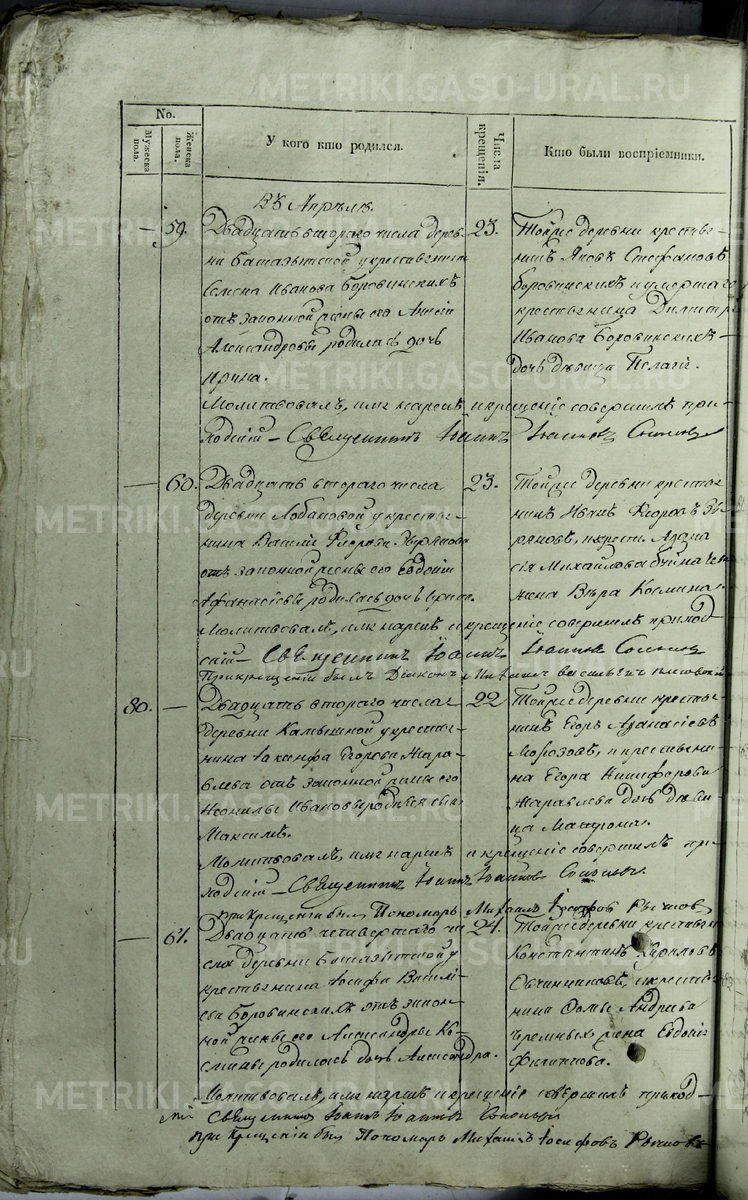 METRIKI.GASO-URAL.RU
No.
Мужеска пола.
Женска пола.
У кого кто родился.
Числа крещенія.
Кто были воспріемники.
Въ Апрѣлѣ.
— 59. Двадцать втораго числа дерев-
ни крестьянина
Семена Иванова Боровинскихъ
отъ законной жены его
Александровы родилась дочь
Ирина.
23. Тойже деревни крестья-
нинъ Яковъ Стефановъ
Боровинскихъ и умершаго
крестьянина
Иванова Боровинскихъ
дочь дѣвица Пелагія.
Молитвовалъ, имя нарекъ и крещеніе совершилъ при-
ходскій Священникъ Іоаннъ
— 60. Двадцать втораго числа
деревни Лобановой у крестья-
нина Василія Ѳедорова Зырянова
отъ законной жены его Евдокіи
Афанасіевы родилась дочь
23. Тойже деревни крестья-
нинъ Иванъ Ѳедоровъ Зы-
ряновъ, и крест. Афана-
сія Михайлова
жена Вѣра Космина.
Молитвовалъ, имя нарекъ и крещеніе совершилъ приход-
скій Священникъ Іоаннъ
При крещеніи былъ Діаконъ
80. — Двадцать втораго числа
деревни Камышной у крестья-
нина Іакинфа Егорова Жура-
влева отъ законной жены его
Неонилы Ивановы родился сынъ
Максимъ.
22 Тойже деревни крестья-
нинъ Егоръ Афанасіевъ
Морозовъ, и крестьяни-
на Егора Никифорова
Журавлева дочь дѣви-
ца Матрона.
Молитвовалъ, имя нарекъ и крещеніе совершилъ при-
ходскій Священникъ Іоаннъ
при крещеніи былъ Пономарь Михаилъ Іосифовъ
— 61. Двадцать четвертаго чи-
сла деревни у
крестьянина Іосифа Василі-
ева Боровинскихъ отъ закон-
ной жены его Александры Ко-
смины родилась дочь Александра.
24. Тойже деревни крестьянинъ
Константинъ Кириловъ
Овчинниковъ, и крестья-
нина Ѳомы Андреева
Черемныхъ жена Евдокія
Филиппова.
Молитвовалъ, имя нарекъ и крещеніе совершилъ приход-
скій Священникъ Іоаннъ
при крещеніи былъ Пономарь Михаилъ Іосифовъ